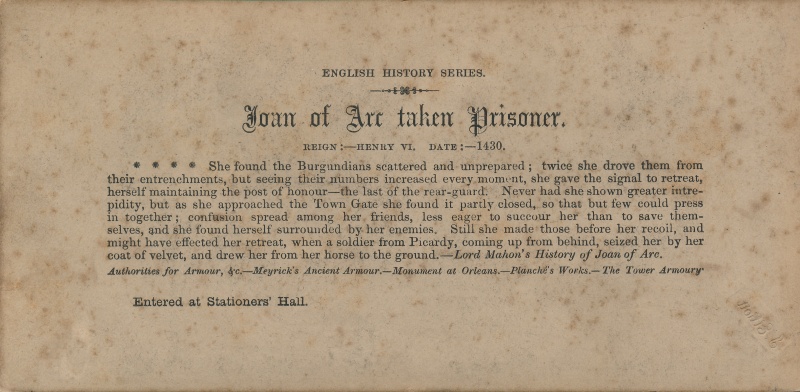 ENGLISH HISTORY SERIES.
Joan of Arc taken Prisoner.
REIGN:—HENRY VI. DATE:—1430.
* * * * She found the Burgundians scattered and unprepared; twice she drove them from
their entrenchments, but seeing their numbers increased every moment, she gave the signal to retreat,
herself maintaining the post of honour—the last of the rear-guard. Never had she shown greater intre-
pidity, but as she approached the Town Gate she found it partly closed, so that but few could press
in together; confusion spread among her friends, less eager to succour her than to save them-
selves, and she found herself surrounded by her enemies. Still she made those before her recoil, and
might have effected her retreat, when a soldier from Picardy, coming up from behind, seized her by her
coat of velvet, and drew her from her horse to the ground.—Lord Mahon's History of Joan of Arc.
Authorities for Armour, &c.—Meyrick's Ancient Armour.—Monument at Orleans.—Planché's Works.—The Tower Armoury
Entered at Stationers' Hall.